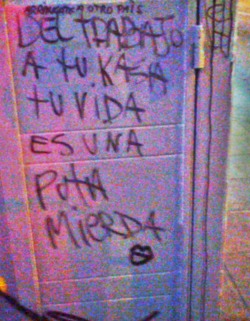 A OTRO PAIS
DEL TRABAJO
A TU KASA
TU VIDA
ES UNA
PUTA
MIERDA